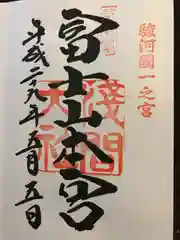 駿河國一之宮
富士山本宮
淺間大社
平成二十九年五月五日